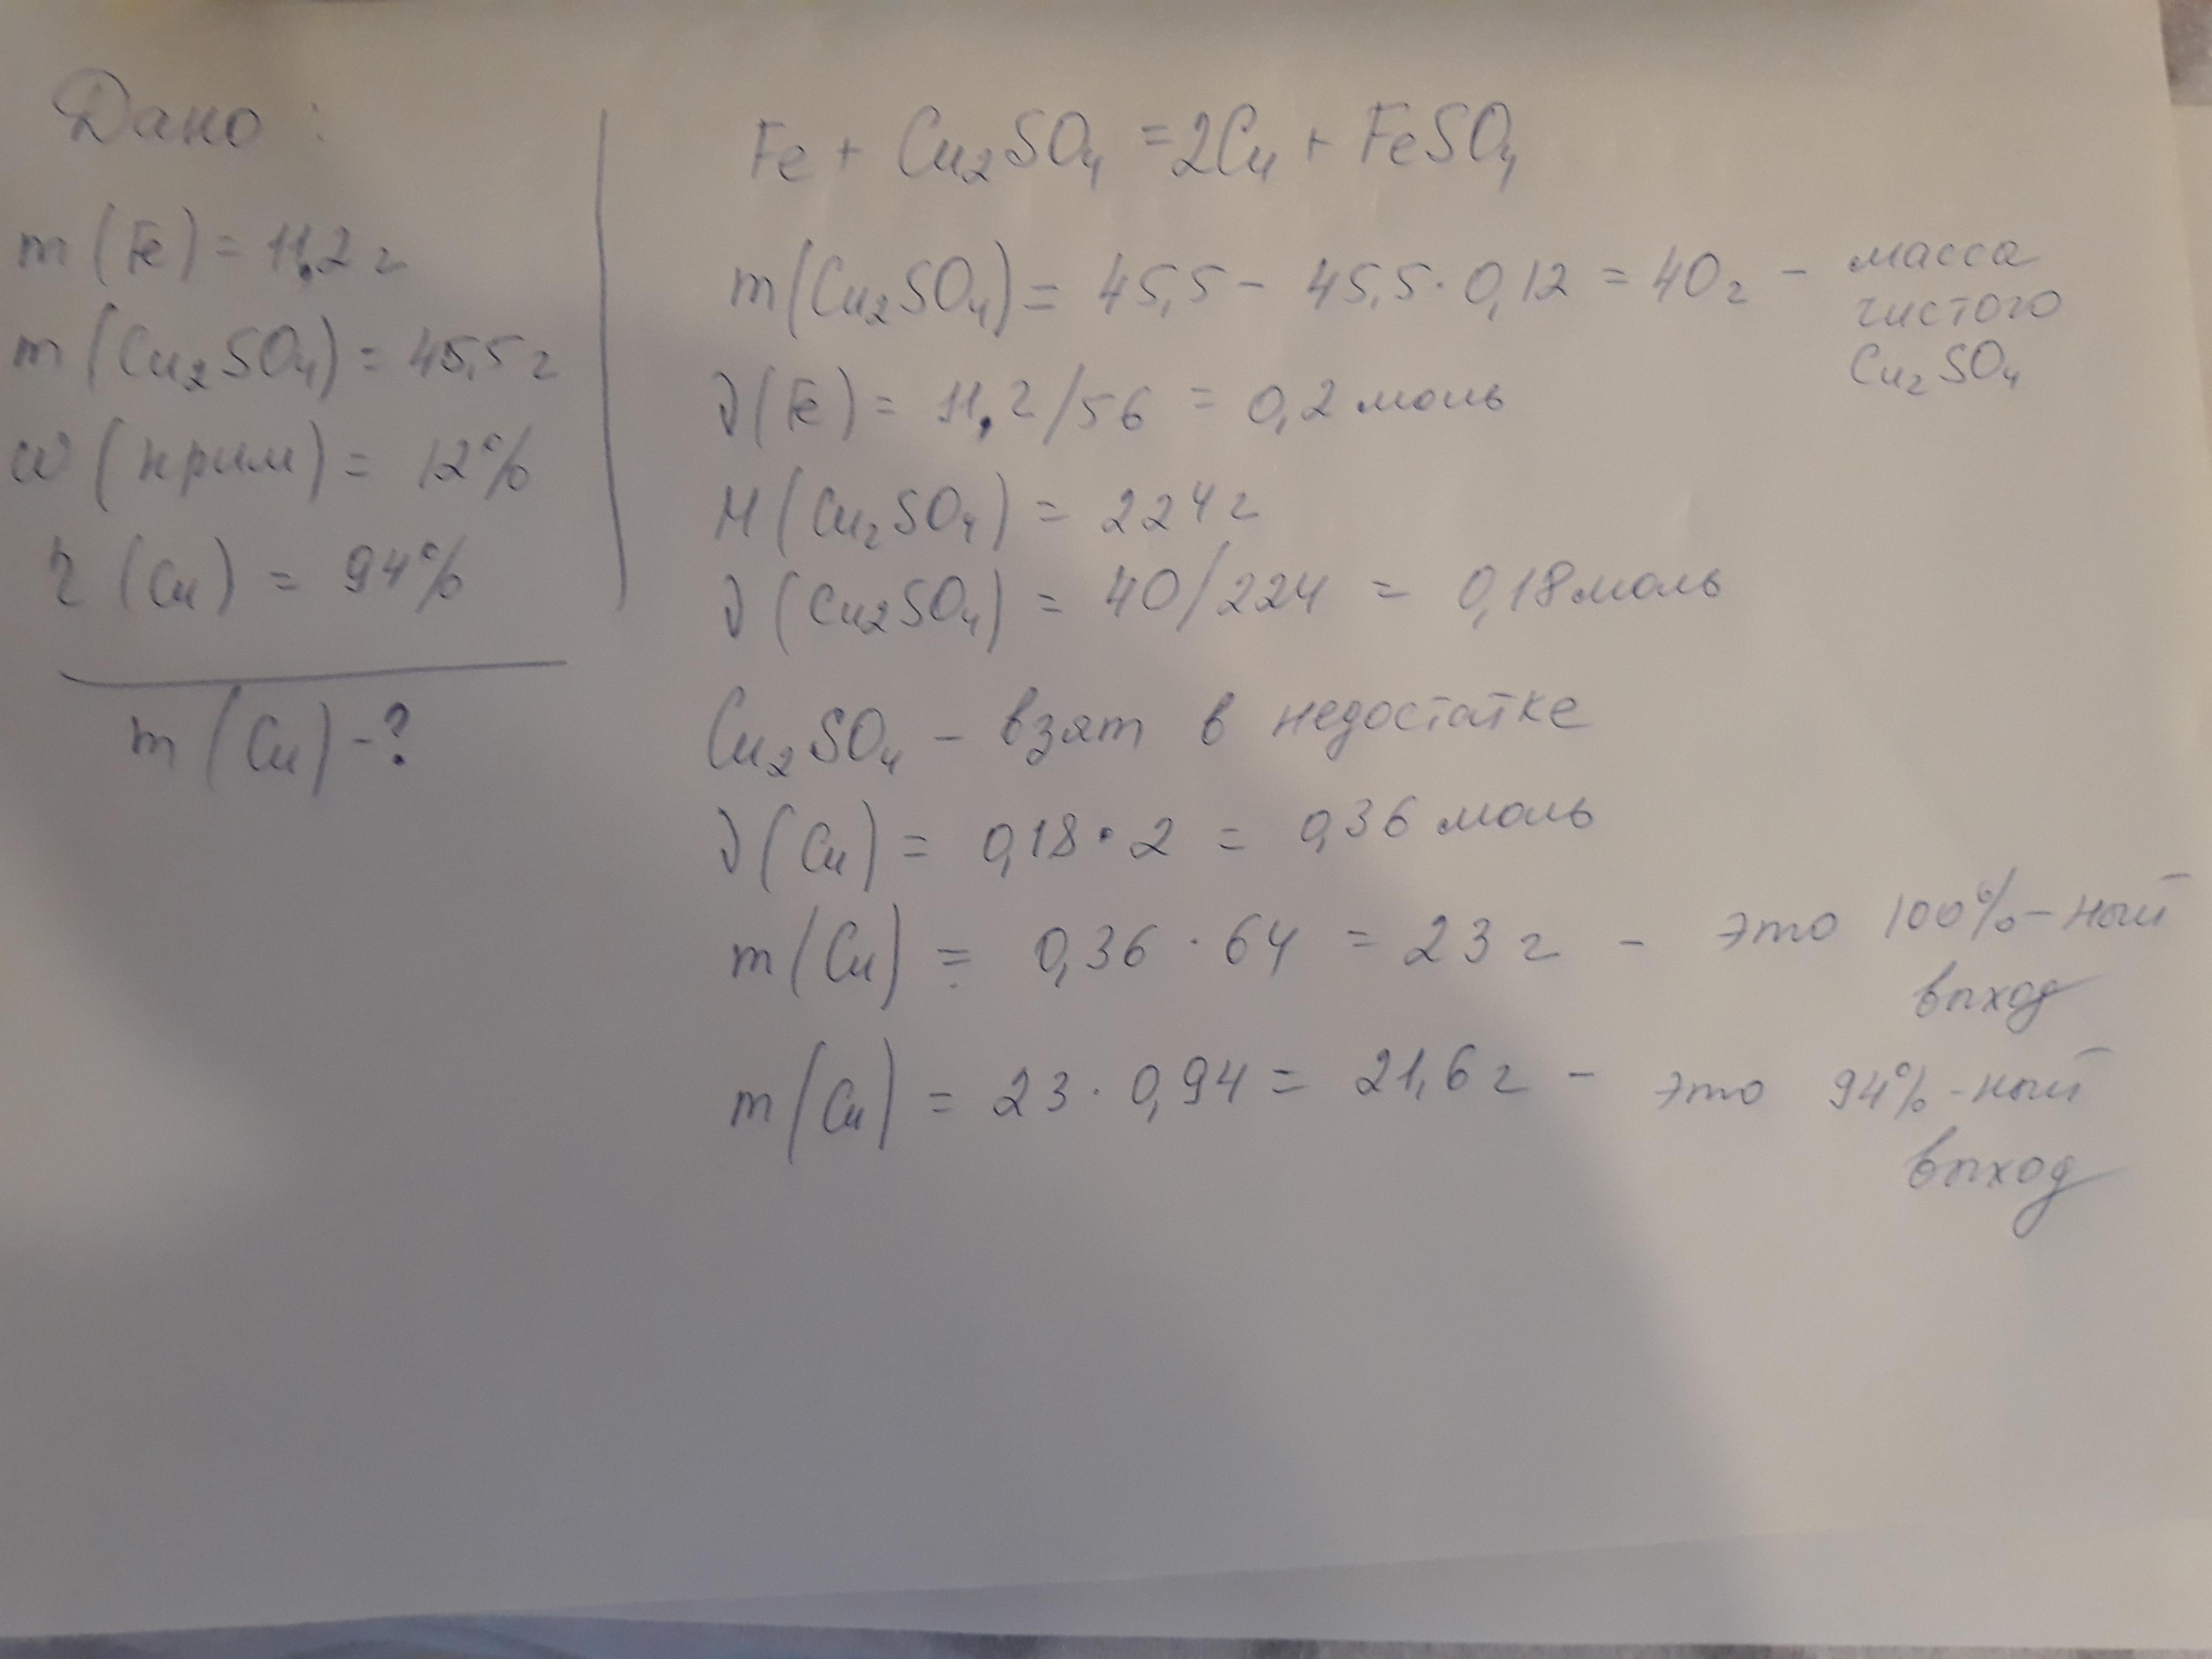 Дано:
m(Fe) = 11,2 г
m(Cu₂SO₄) = 45,5 г
ω(прим) = 12%
η(Cu) = 94%
m(Cu) - ?
Fe + Cu₂SO₄ = 2Cu + FeSO₄
m(Cu₂SO₄) = 45,5 - 45,5 · 0,12 = 40 г - масса
чистого
Cu₂SO₄
ν(Fe) = 11,2/56 = 0,2 моль
M(Cu₂SO₄) = 224 г
ν(Cu₂SO₄) = 40/224 = 0,18 моль
Cu₂SO₄ - взят в недостатке
ν(Cu) = 0,18 · 2 = 0,36 моль
m(Cu) = 0,36 · 64 = 23 г - это 100%-ный
выход
m(Cu) = 23 · 0,94 = 21,6 г - это 94%-ный
выход